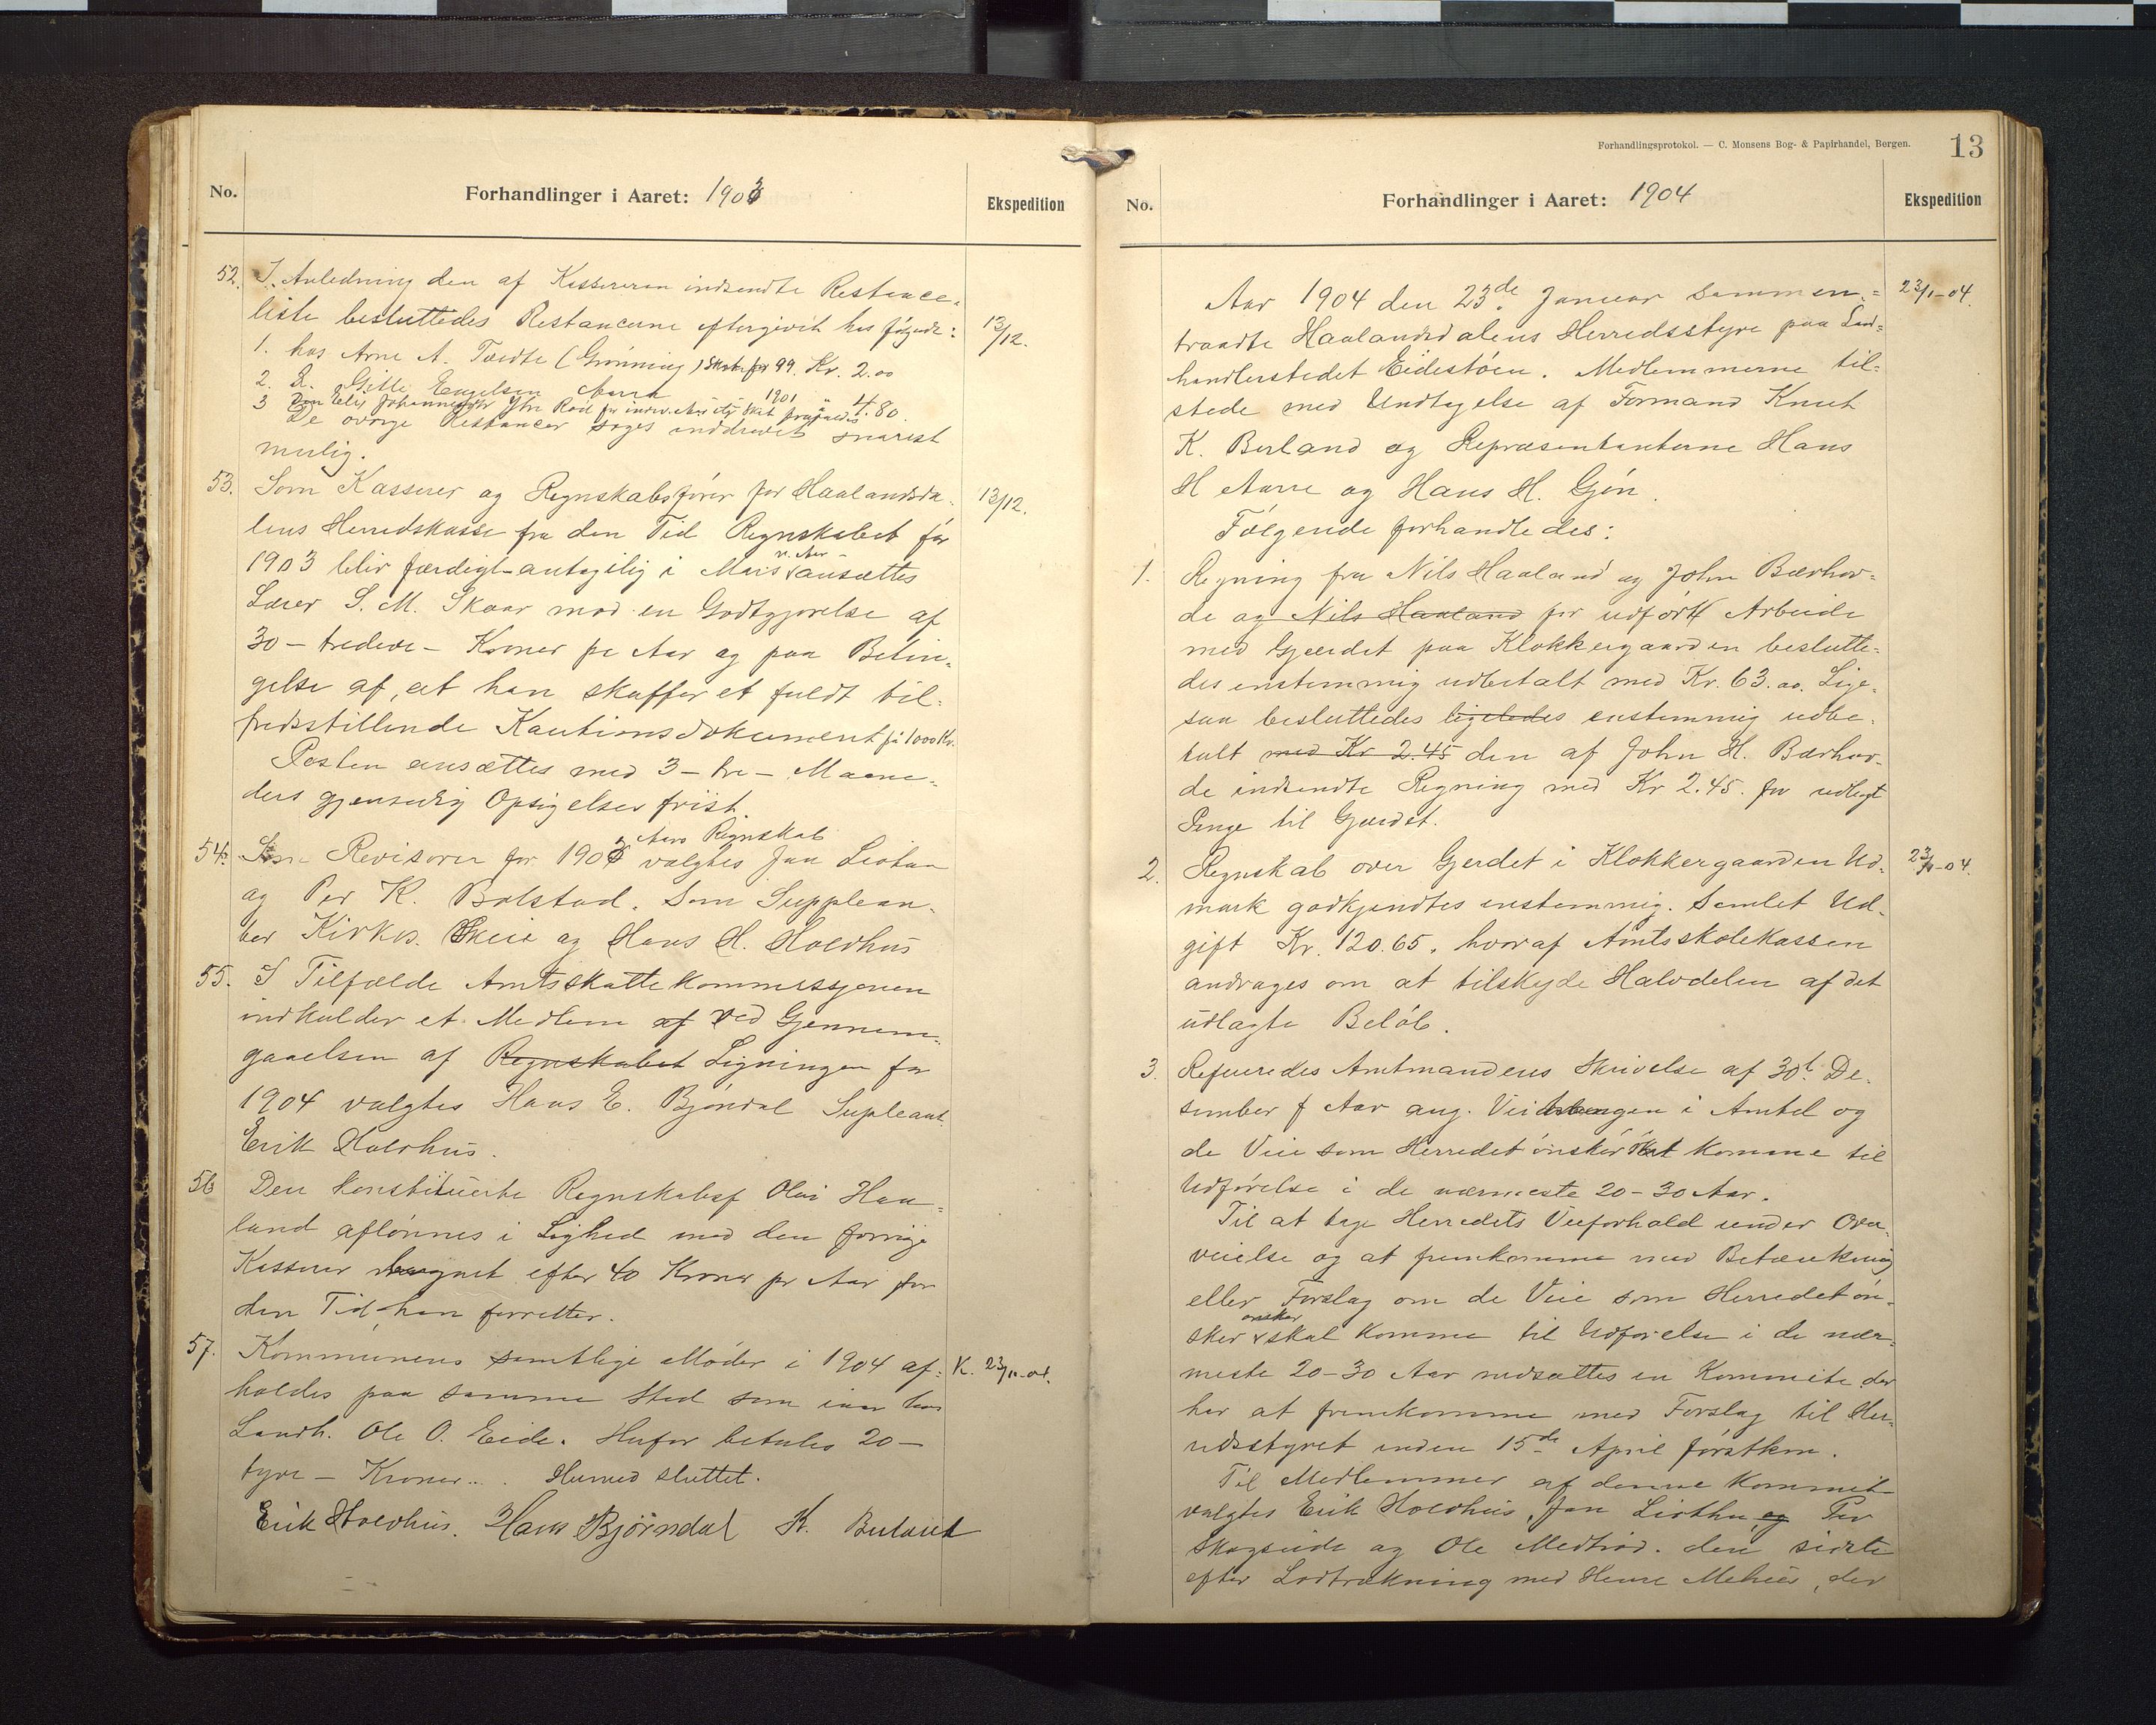 No.
Forhandlinger i Aaret: 1903
Ekspedition
52. I. Anledning den af Kassereren indsendte Restance-
liste besluttedes Restancerne eftergivet hos følgende: 13/12.
1. hos Arne A. Tvedte (Grønning) Skat for 99. Kr. 2.00
2. D. Gitle Engelsen Aarra 1901 " 4.80.
3 Johannesdtr Ytre Rød for
De øvrige Restancer søges inddrevet snarest
mulig.
53. Som Kasserer og Regnskabsfører for Haalandsda- 13/12.
lens Herredskasse fra den Tid Regnskabet for
1903 blir færdigt-antagelig i Mars n. Aar - ansættes
Lærer S. M. Skaar mod en Godtgjørelse af
30 - tredeve - Kroner pr Aar og paa Betin-
gelse af, at han skaffer et fuldt til-
fredsstillende Kautionsdokument på 1000 Kr.
Posten ansættes med 3 - tre - Maane-
ders gjensidig Opsigelses frist.
54. Som Revisorer for 1903 Aars Regnskab valgtes Jan Liothun
og Per K. Bolstad. Som Supplean-
ter Kirkes. Skeie og Hans H. Holdhus
55. I Tilfælde Amtsskattekommissjonen
indkalder et Medlem af ved Gjennem-
gaaelsen af Regnskabet Ligningen for
1904 valgtes Hans E. Bjøndal Supleant
Erik Holdhus.
56 Den konstituerte Regnskabsf Olai Haa-
land aflønnes i Lighed med den forrige
Kasserer beregnet efter 40 Kroner pr Aar for
den Tid han forretter.
57. Kommunens samtlige Møder i 1904 af- K. 23/11-04.
holdes paa samme Sted som iaar hos
Landh. Ole O. Eide. Herfor betales 20 -
tyve - Kroner... Hermed sluttet.
Erik Holdhus. Hans Bjørndal K. Berland
Forhandlingsprotokol. — C. Monsens Bog- & Papirhandel, Bergen.
13
No.
Forhandlinger i Aaret: 1904
Ekspedition
Aar 1904 den 23de Januar sammen- 23/1-04.
traadte Haalandsdalens Herredsstyre paa Land-
handlerstedet Eidestøen. Medlemmerne til-
stede med Undtagelse af Formand Knut
K. Berland og Repræsentanterne Hans
H Aarre og Hans H. Gjøn.
Følgende forhandledes:
1. Regning fra Nils Haaland og John Bærhov-
de og Nils Haaland for udført Arbeide
med Gjærdet paa Klokkergaarden beslutte-
des enstemmig udbetalt med Kr. 63.00. Lige-
saa besluttedes ligeledes enstemmig udbe-
talt med Kr 2.45 den af John H. Bærhov-
de indsendte Regning med Kr 2.45. for udlagt
Penge til Gjærdet.
2. Regnskab over Gjerdet i Klokkergaarden Ud- 23/1-04.
mark godkjendtes enstemmig. Samlet Ud-
gift Kr. 120.65, hvoraf Amtsskolekassen
andrages om at tilskyde Halvdelen af det
udlagte Beløb.
3. Refereredes Amtmandens Skrivelse af 30t De-
sember f Aar ang. Vei i Amtet og
de Veie som Herredet ønsker at komme til
Udførelse i de nærmeste 20-30 Aar.
Til at tage Herredets Veiforhold under Over-
veielse og at fremkomme med Betænkning
eller Forslag om de Veie som Herredet øn-
sker ønsker skal komme til Udførelse i de nær-
meste 20-30 Aar nedsættes en Kommite der
har at fremkomme med Forslag til Her-
redsstyret inden 15de April førstkom.
Til Medlemmer af denne Kommite
valgtes Erik Holdhus, Jan Liothun og Per
Skogseide og Ole Medtrød. den sidste
efter Lodtrækning med Henre Mehus, der